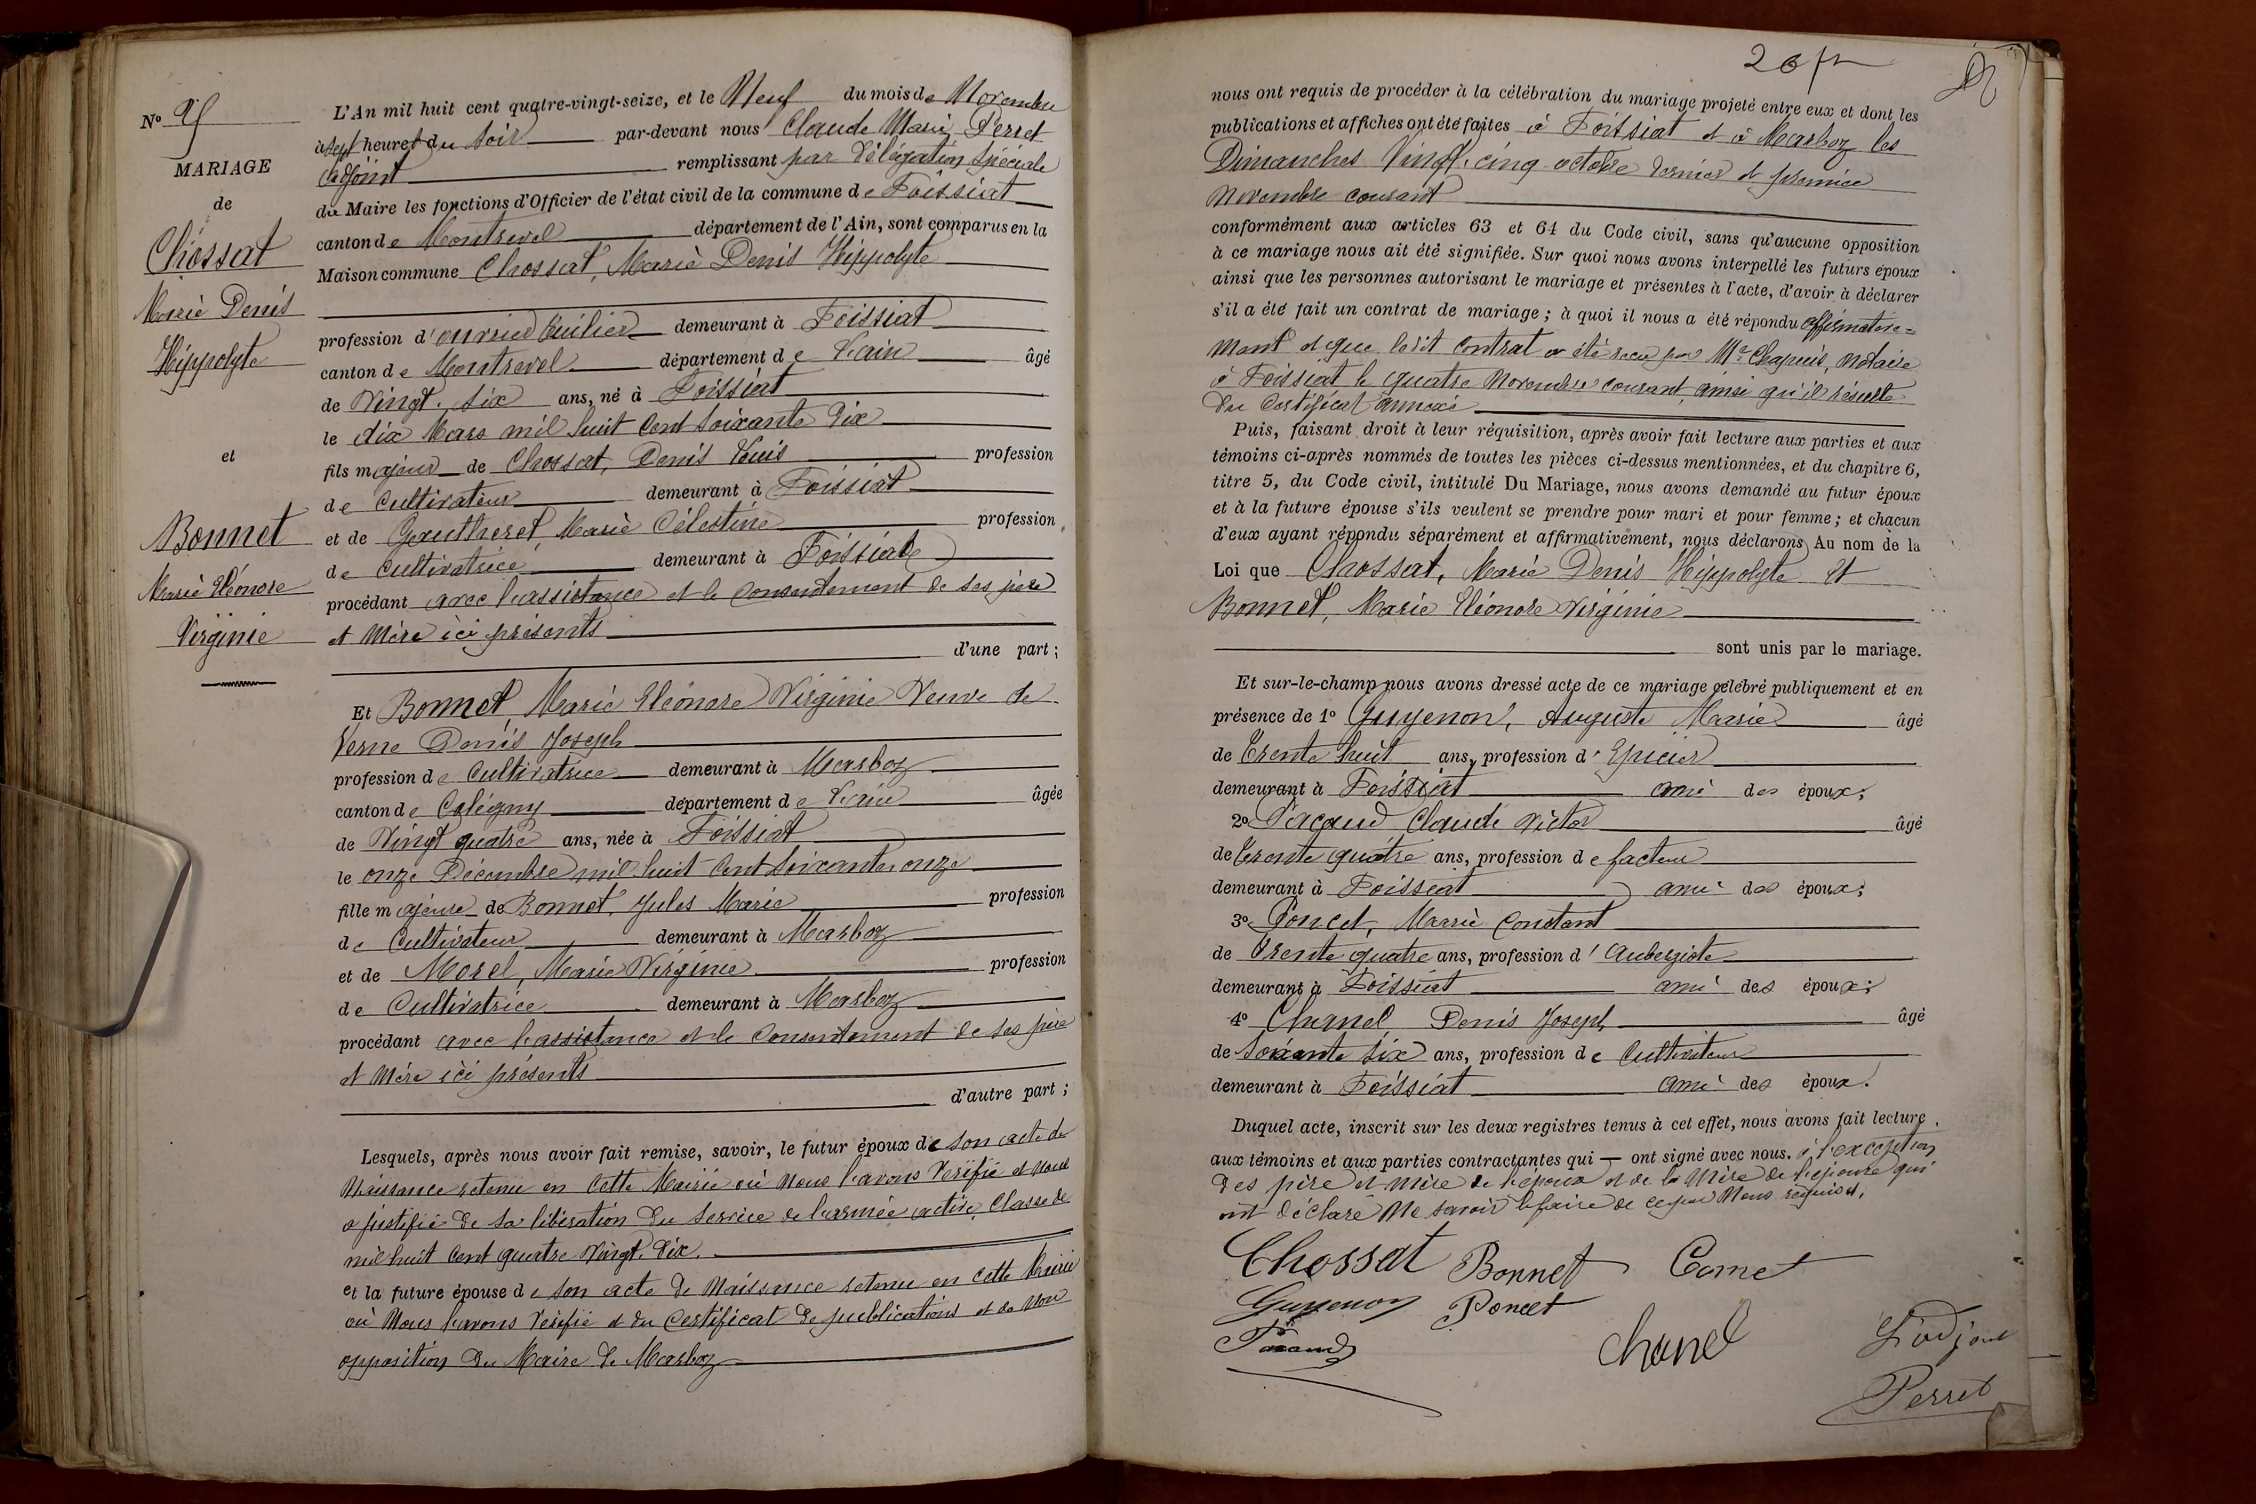 L'An mil huit cent quatre-vingt-seize, et le Neuf du mois de Novembre
N°
à sept heures du Soir par-devant nous Claude Marie Perret
MARIAGE
adjoint remplissant par Délégation Spéciale
de
du Maire les fonctions d'Officier de l'état civil de la commune de Foissiat
canton de Montrevel département de l'Ain, sont comparus en la
Chossat
Maison commune Chossat, Marie Denis Hippolyte
Marie Denis
profession d'ouvrier tuilier demeurant à Foissiat
Hippolyte
canton de Montrevel département de l'ain âgé
de Vingt-six ans, né à Foissiat
le dix Mars mil huit cent soixante dix
et
fils majeur de Chossat, Denis Louis profession
de Cultivateur demeurant à Foissiat
Bonnet
et de Gautheret, Marie Célestine profession
de Cultivatrice demeurant à Foissiat
Marie Eléonore
procédant avec l'assistance et le Consentement de ses père
Virginie
et Mère ici présents
d'une part ;
Et Bonnet, Marie Eléonore Virginie Veuve de
Verne Denis Joseph
profession de Cultivatrice demeurant à Marboz
canton de Coligny département de l'ain âgée
de Vingt quatre ans, née à Foissiat
le onze Décembre mil huit Cent Soixante onze
fille majeure de Bonnet, Jules Marie profession
de Cultivateur demeurant à Marboz
et de Morel, Marie Virginie profession
de Cultivatrice demeurant à Marboz
procédant avec l'assistance et le Consentement de ses père
et Mère ici présents
d'autre part ;
Lesquels, après nous avoir fait remise, savoir, le futur époux de son acte de
Naissance retenu en Cette Mairie où Nous l'avons Vérifié et Nous
a justifié de sa libération du Service de l'armée active, Classe de
mil huit Cent quatre Vingt Dix.
et la future épouse de son acte de Naissance retenu en Cette Mairie
où Nous l'avons Vérifié et du Certificat de publications et de Non
opposition du Maire de Marboz
nous ont requis de procéder à la célébration du mariage projeté entre eux et dont les
publications et affiches ont été faites à Foissiat et à Marboz les
Dimanches Vingt-cinq octobre dernier et premier
Novembre courant
conformément aux articles 63 et 64 du Code civil, sans qu'aucune opposition
à ce mariage nous ait été signifiée. Sur quoi nous avons interpellé les futurs époux
ainsi que les personnes autorisant le mariage et présentes à l'acte, d'avoir à déclarer
s'il a été fait un contrat de mariage ; à quoi il nous a été répondu affirmative=
ment et que ledit Contrat a été recu par Me Chapuis, notaire
à Foissiat le quatre Novembre courant, ainsi qu'il résulte
du Certificat annexé
Puis, faisant droit à leur réquisition, après avoir fait lecture aux parties et aux
témoins ci-après nommés de toutes les pièces ci-dessus mentionnées, et du chapitre 6,
titre 5, du Code civil, intitulé Du Mariage, nous avons demandé au futur époux
et à la future épouse s'ils veulent se prendre pour mari et pour femme ; et chacun
d'eux ayant répondu séparément et affirmativement, nous déclarons Au nom de la
Loi que Chossat, Marie Denis Hippolyte Et
Bonnet, Marie Eléonore Virginie
sont unis par le mariage.
Et sur-le-champ nous avons dressé acte de ce mariage célébré publiquement et en
présence de 1° Guyenon, Auguste Marie âgé
de Trente huit ans, profession d'Epicier
demeurant à Foissiat ami des époux ;
2° Claude Victor âgé
de trente quatre ans, profession de facteur
demeurant à Foissiat ami des époux ;
3° Poncet, Marie Constant
de trente quatre ans, profession d'Aubergiste
demeurant à Foissiat ami des époux ;
4° Chanel, Denis Joseph âgé
de soixante six ans, profession de Cultivateur
demeurant à Foissiat ami des époux.
Duquel acte, inscrit sur les deux registres tenus à cet effet, nous avons fait lecture
aux témoins et aux parties contractantes qui — ont signé avec nous. à l'exception
des père et mère de l'époux et de la Mère de l'épouse qui
ont déclaré Ne savoir le faire de ce par Nous requis.
Chossat Bonnet
Guyenon Poncet
Chanel
L'adjoint
Perret